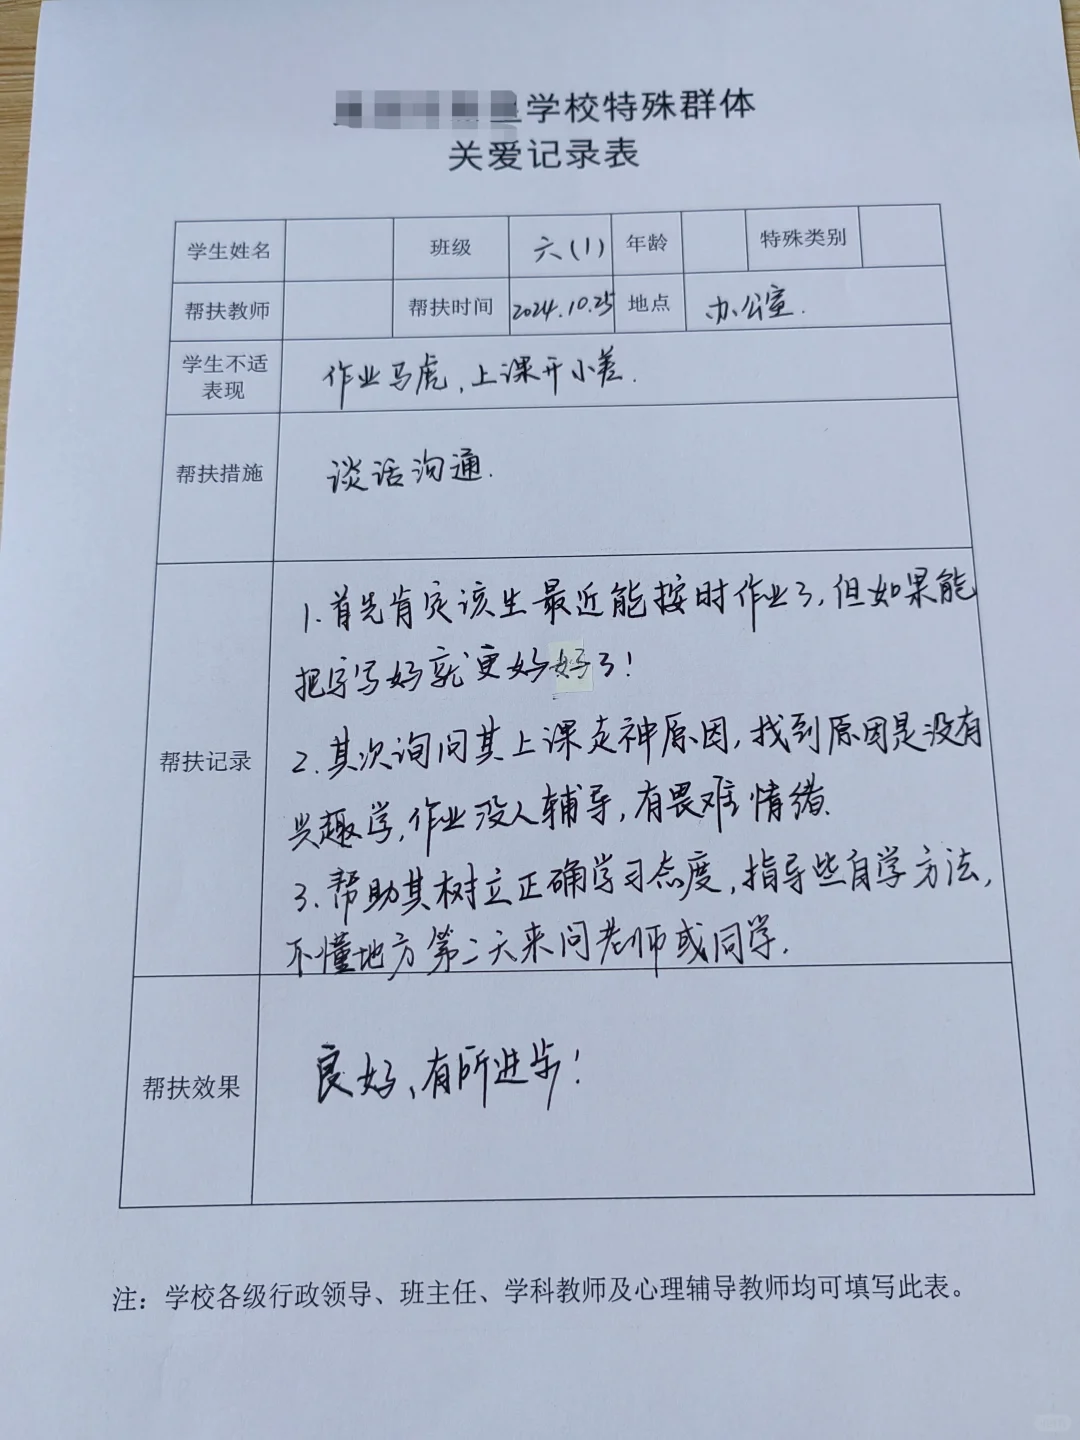 学校特殊群体
关爱记录表
学生姓名 班级 六(1) 年龄 特殊类别
帮扶教师 帮扶时间 2024.10.25 地点 办公室.
学生不适
表现
作业马虎,上课开小差.
帮扶措施
谈话沟通.
帮扶记录
1.首先肯定该生最近能按时作业了,但如果能
把字写好就更好好了!
2.其次询问其上课走神原因,找到原因是没有
兴趣学,作业没人辅导,有畏难情绪.
3.帮助其树立正确学习态度,指导些自学方法,
不懂地方第二天来问老师或同学.
帮扶效果
良好、有所进步!
注：学校各级行政领导、班主任、学科教师及心理辅导教师均可填写此表。